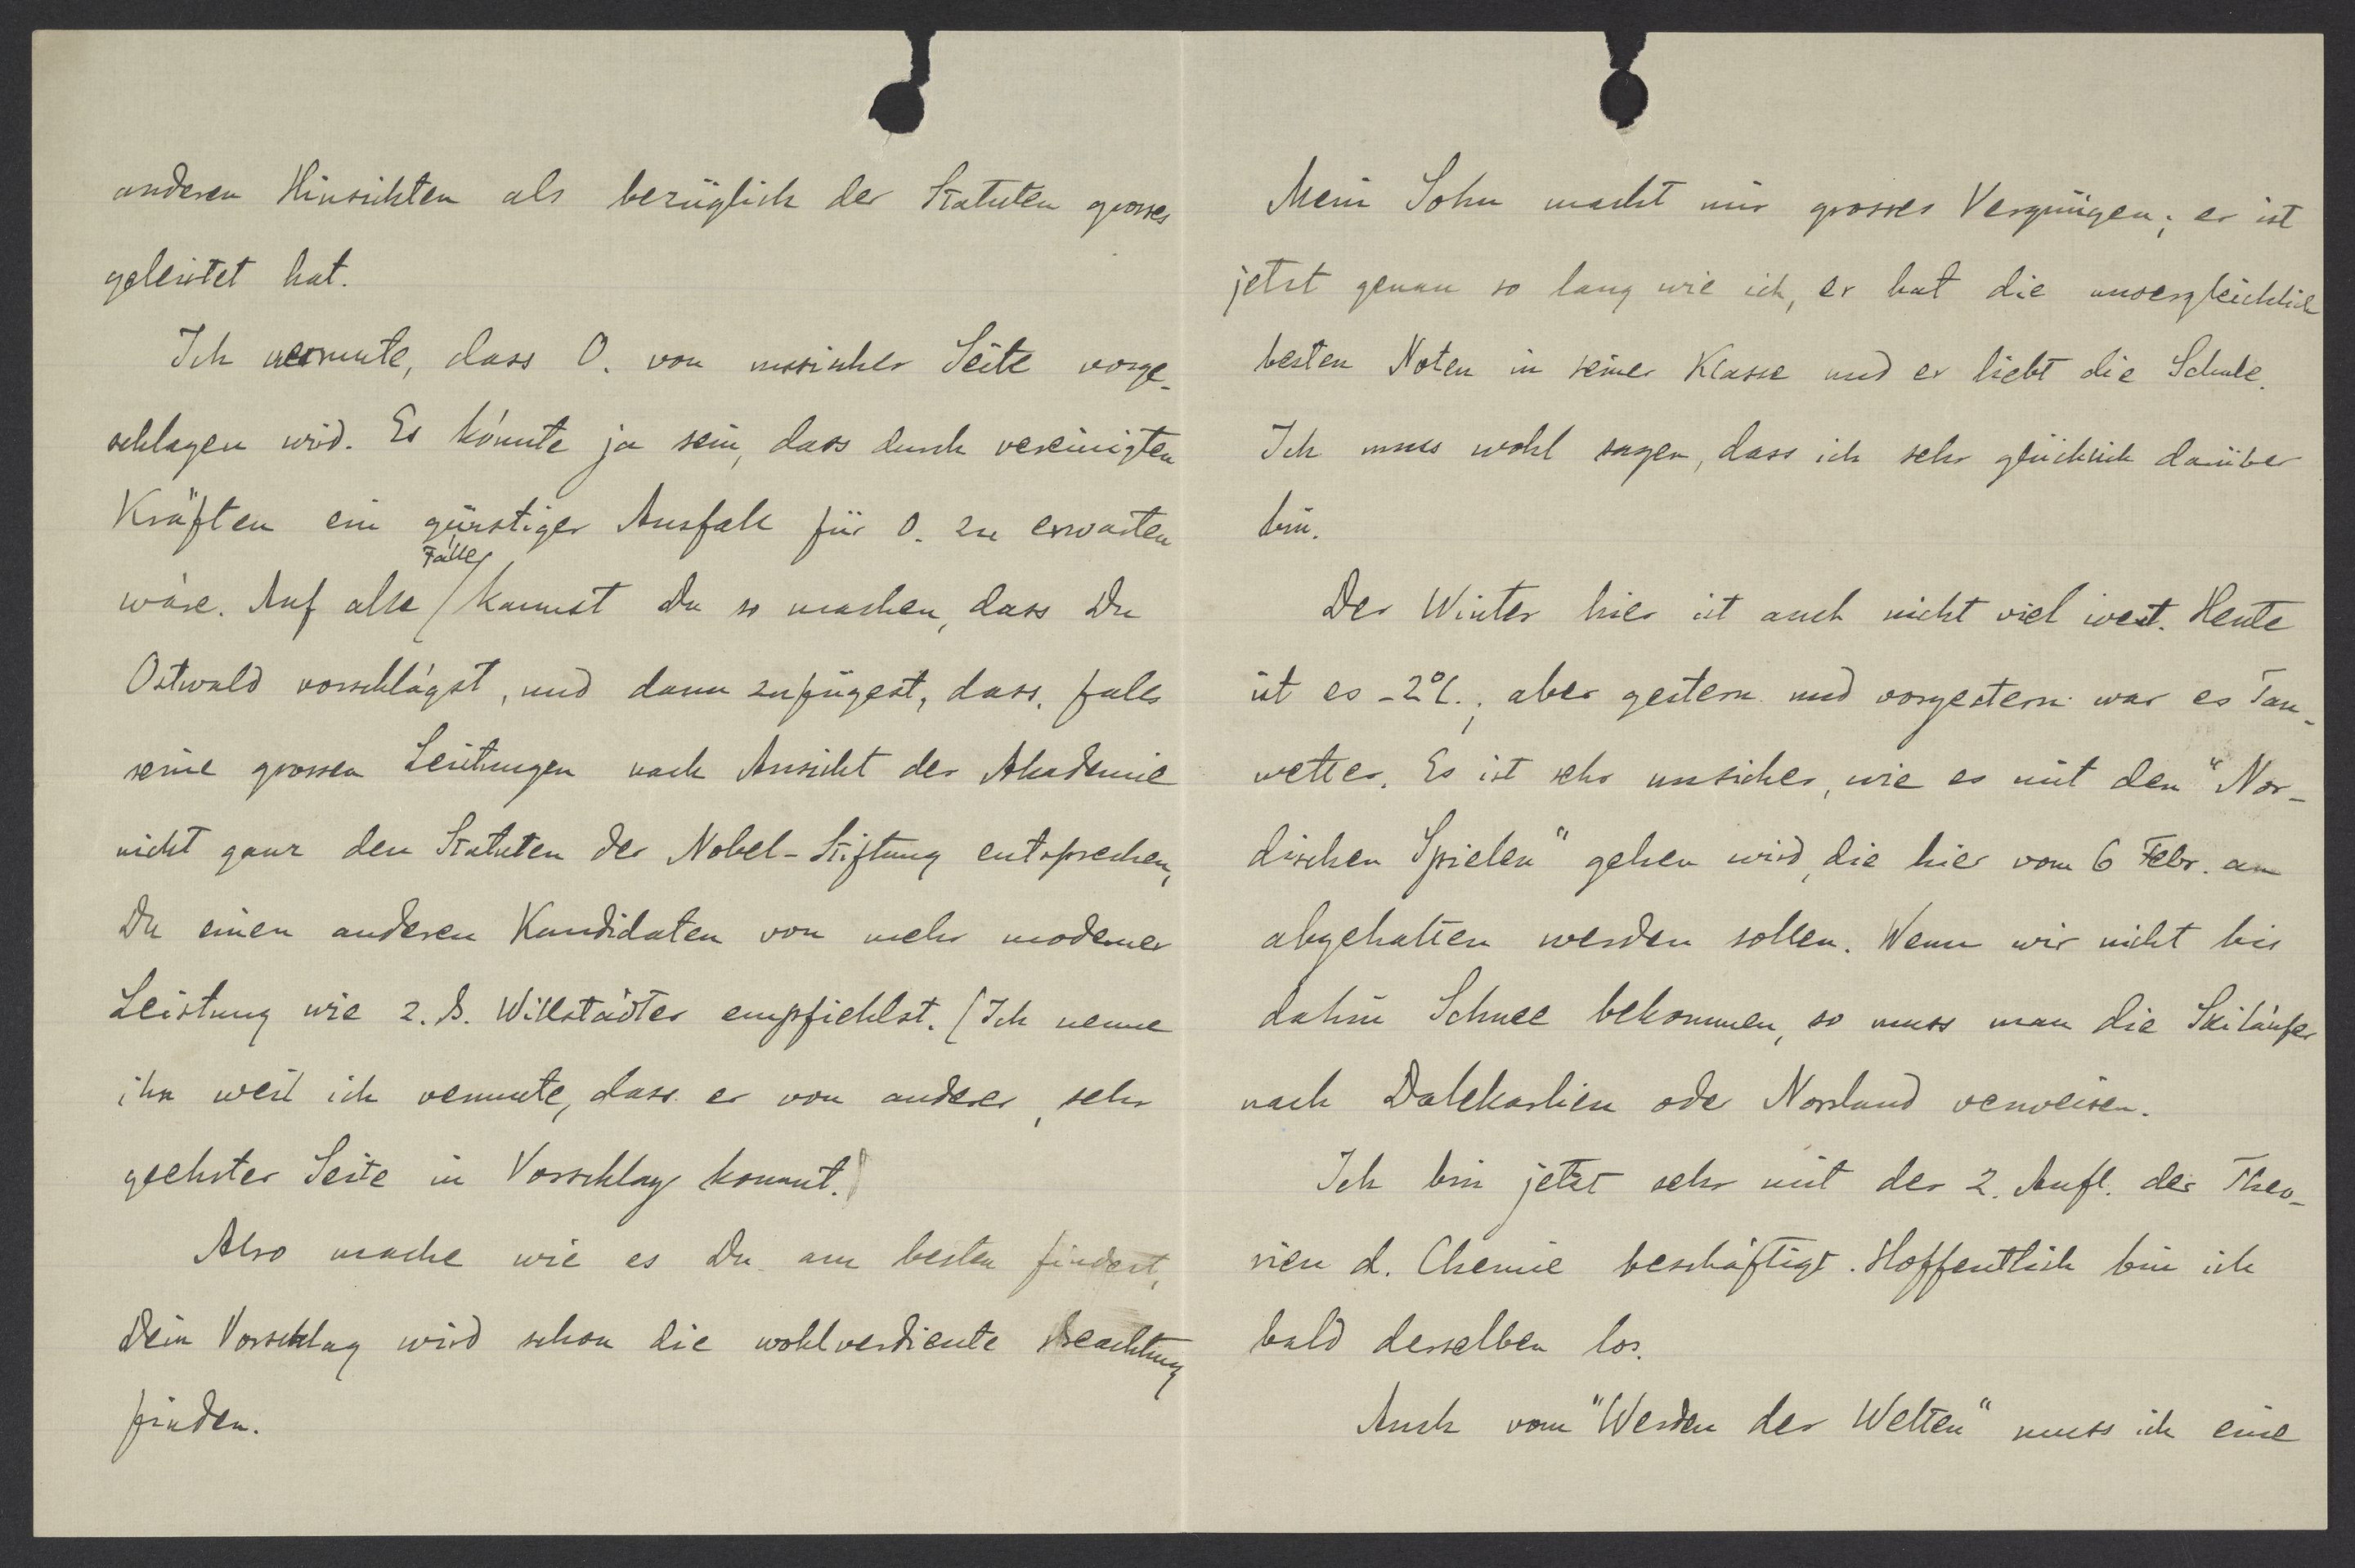 anderen Hinsichten als bezüglich der Statuten grosses
geleistet hat.
Ich vermute, dass O. von russischer Seite vorge-
schlagen wird. Es könnte ja sein, dass durch vereinigten
Kräften ein günstiger Ausfall für O. zu erwarten
wäre. Auf alle Fälle kannst du so machen, dass Du
Ostwald vorschlägst, und dann zufügest, dass, falls
seine grossen Leistungen nach Ansicht der Akademie
nicht ganz den Statuten der Nobel-Stiftung entsprechen,
Du einen anderen Kandidaten von mehr moderner
Leistung wie z. B. Willstädter empfiehlst. (Ich nenne
ihn weil ich vermute, dass er von anderer, sehr
geehrter Seite in Vorschlag kommt.)
Also mache wie es Du am besten findest,
Dein Vorschlag wird schon die wohlverdiente Beachtung
finden.
Mein Sohn macht mir grosses Vergnügen; er ist
jetzt genau so lang wie ich, er hat die unvergleichlich
besten Noten in seiner Klasse und er liebt die Schule.
Ich muss wohl sagen, dass ich sehr glücklich darüber
bin.
Der Winter hier ist auch nicht viel wert. Heute
ist es -2°C.; aber gestern und vorgestern war es Tau-
wetter. Es ist sehr unsicher, wie es mit den "Nor-
dischen Spielen" gehen wird, die hier vom 6 Febr. an
abgehalten werden sollen. Wenn wir nicht bis
dahin Schnee bekommen, so muss man die Skiläufer
nach Dalekarlien oder Norrland verweisen.
Ich bin jetzt sehr mit der 2. Aufl. der Theo-
rien d. Chemie beschäftigt. Hoffentlich bin ich
bald derselben los.
Auch vom "Werden der Welten" muss ich eine